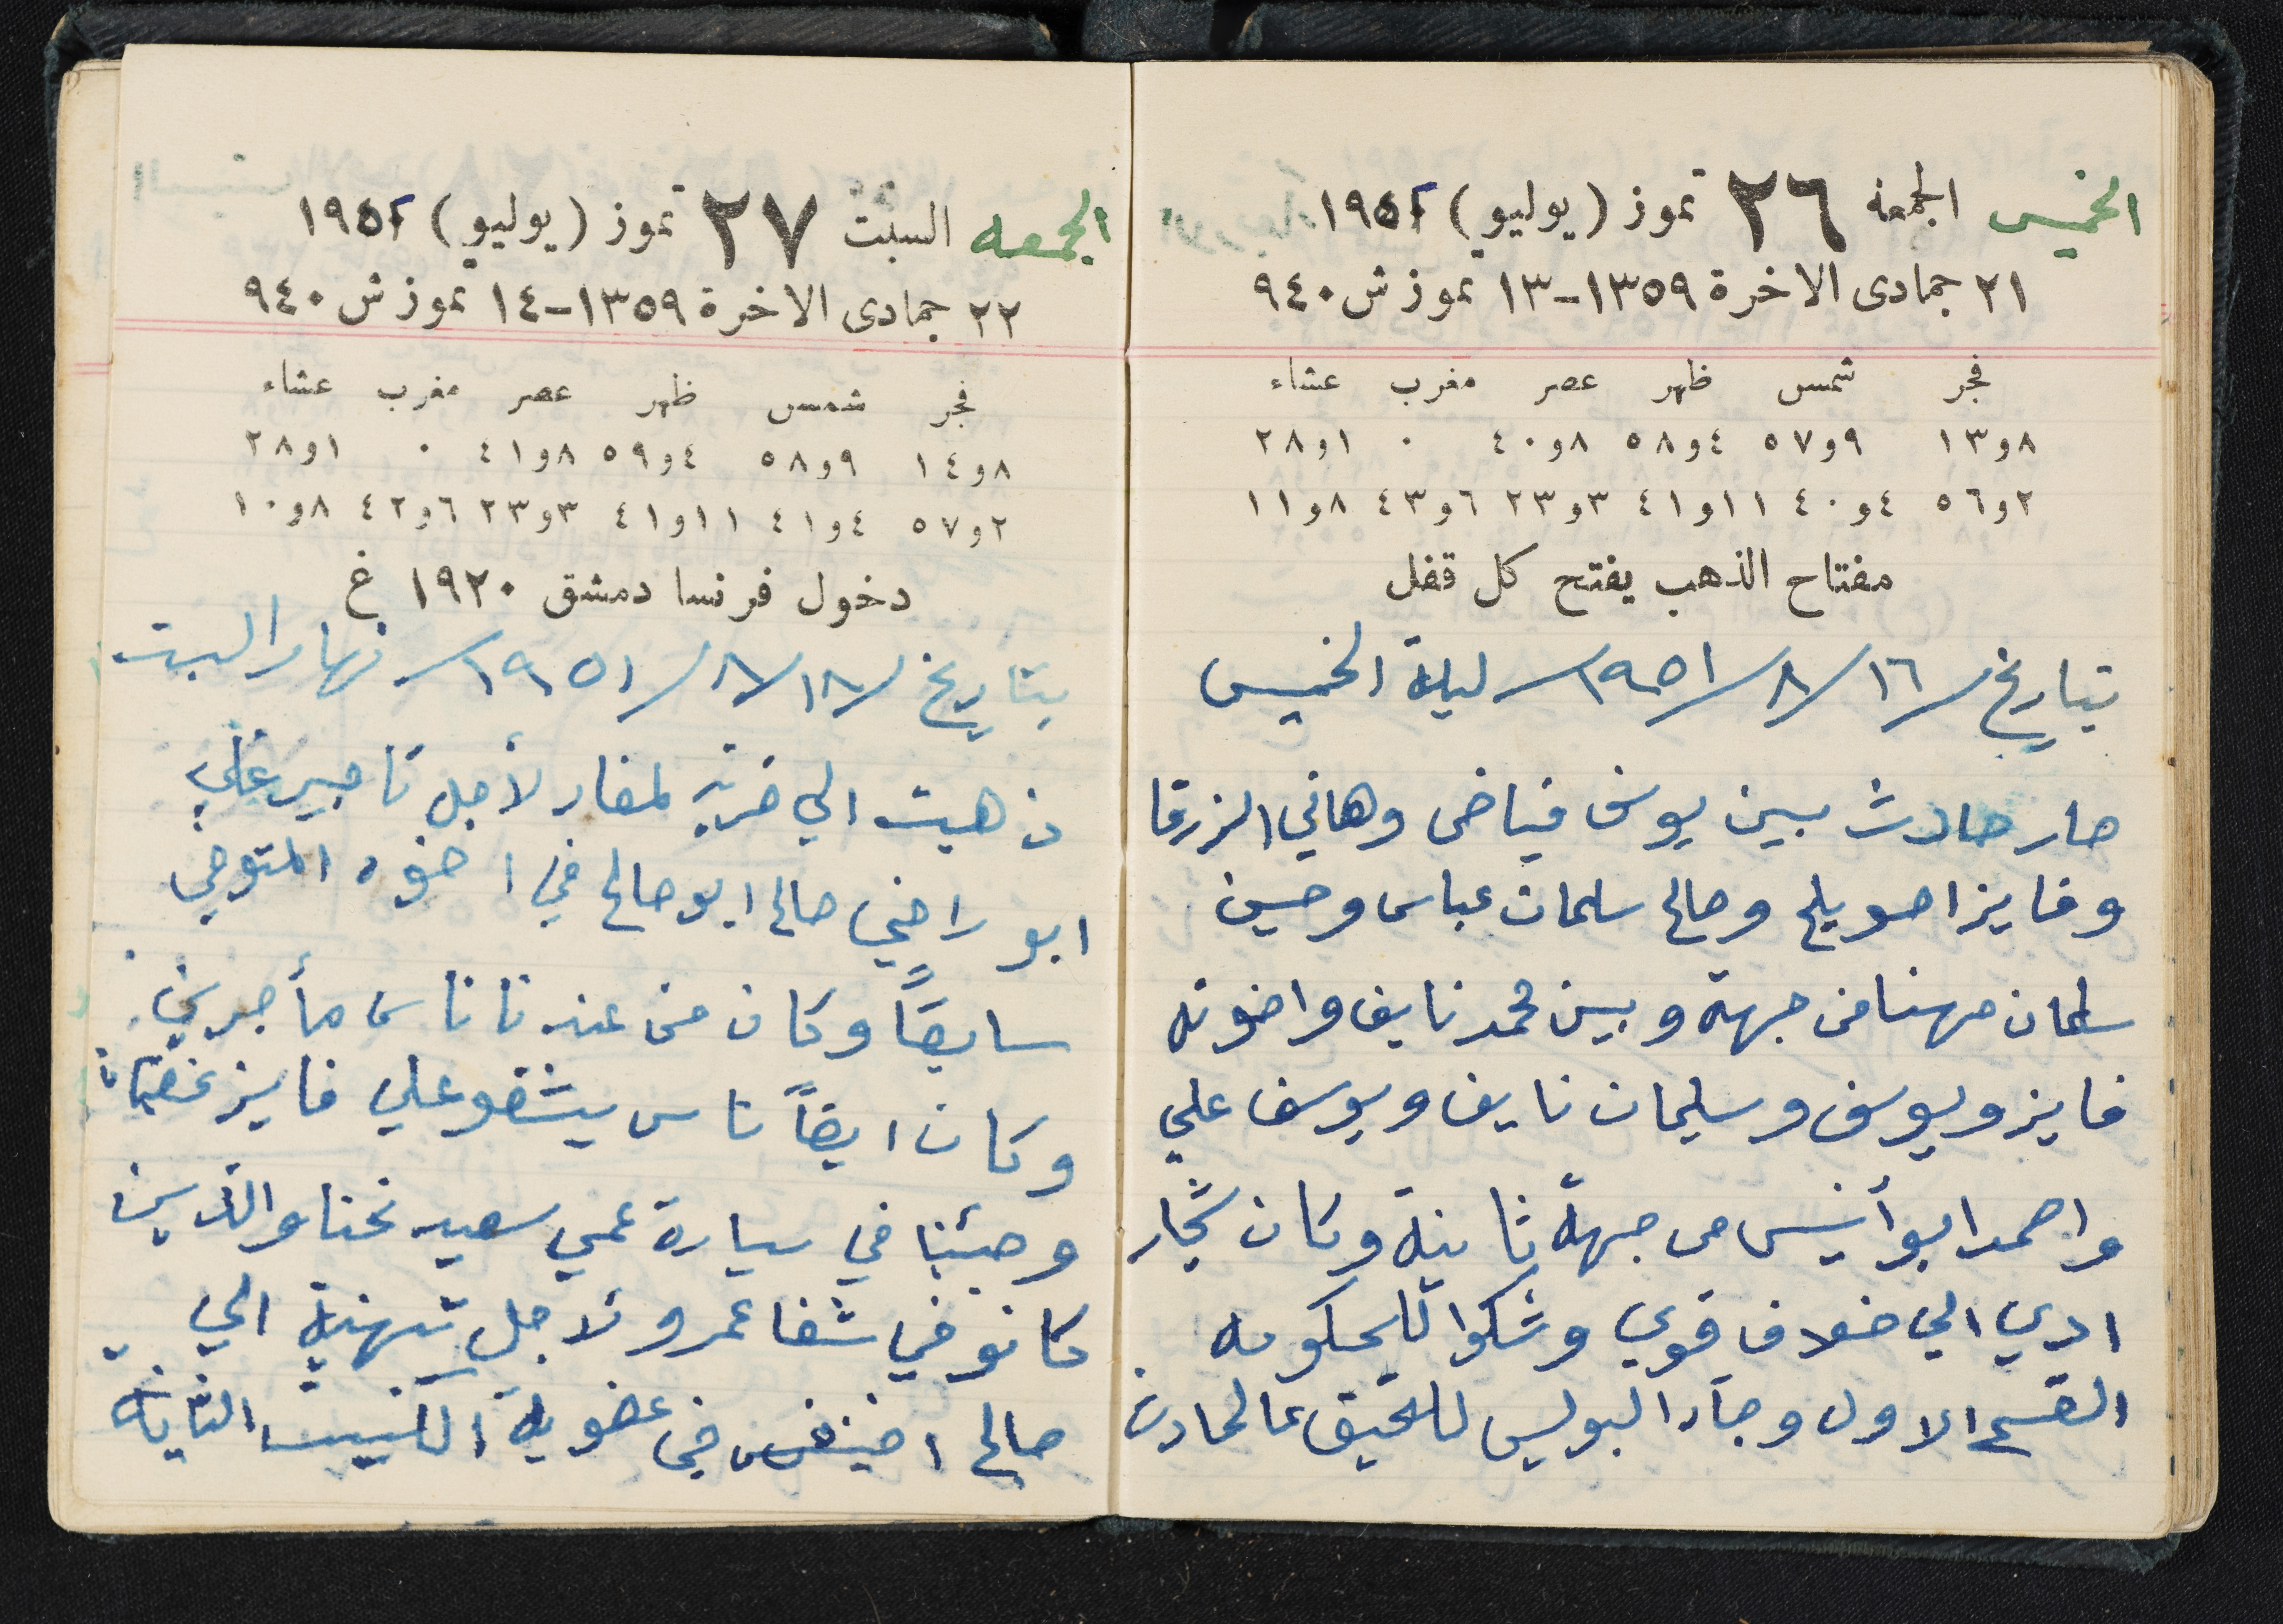 الخميس الجمعة ٢٦ تموز (يوليو) ١٩٥١
٢١ جمادى الاخرة ١٣٥٩-١٣ تموز ش ٩٤٠
فجر شمس ظهر عصر مغرب عشاء
٨و١٣ ٩و٥٧ ٤و٥٨ ٨و٤٠ ٠ ١و٢٨
٢و٥٦ ٤و٤٠ ١١و٤١ ٣و٢٣ ٦و٤٣ ٨و١١
مفتاح الذهب يفتح كل قفل
بتاريخ ١٦/٨/١٩٥١ ليلة الخميس
صار حادث بين يوسف فياض وهاني الزرقا
وفايز اصويلح وصالح سلمان عباس وحسين
سلمان مهنا من جهة وبين محمد نايف واخوته
فايز ويوسف وسليمان نايف ويوسف علي
واحمد ابو أنيس من جهة ثانية وكان شجار
ادي الي خلاف قوي وشكوا للحكومه
القسم الاول وجاء البوليس للتحقيق عالحادث
الجمعه السبت ٢٧ تموز (يوليو) ١٩٥١
٢٢ جمادى الاخرة ١٣٥٩-١٤ تموز ش ٩٤٠
فجر شمس ظهر عصر مغرب عشاء
٨و١٤ ٩و٥٨ ٤و٥٩ ٨و٤١ ٠ ١و٢٨
٢و٥٧ ٤و٤١ ١١و٤١ ٣و٢٣ ٦و٤٢ ٨و١٠
دخول فرنسا دمشق ١٩٢٠ غ
بتاريخ ١٨/٨/١٩٥١ نهار السبت
ذهبت الي قرية لمغار لأجل تاجير علي
ابو راضي صالح ابو صالح في اخوه المتوفي
سابقاً وكان من عندنا ناس مأجرين
وكان ايضاً ناس يشقو علي فايز غضبان
وجئنا في سيارة عمي سعيد نحنا والذين
كانو في شفاعمرو لاجل تهنية الي
صالح اخنيفس في عضوية الكنيست الثانية